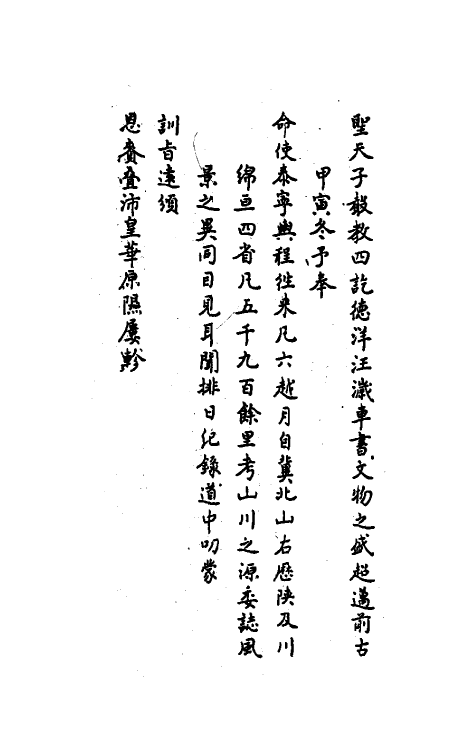 聖天子敷教四訖德洋汪濊車書文物之盛超邁前古
甲寅冬予奉
命使泰寧輿程徃来凡六越月自冀北山右歷陝及川
綿亘四省凡五千九百餘里考山川之源委誌風
景之異同目見耳聞排日紀錄道中叨蒙
訓旨遠頒
恩賚疊沛皇華原隰屢